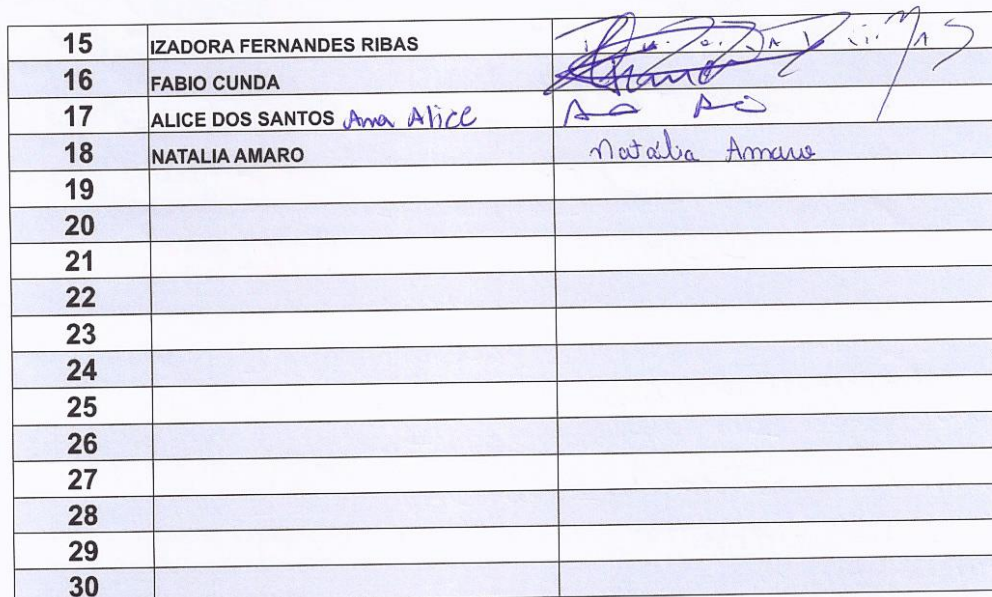 15 IZADORA FERNANDES RIBAS
16 FABIO CUNDA
17 ALICE DOS SANTOS Ana Alice
18 NATALIA AMARO Natália Amaro
19
20
21
22
23
24
25
26
27
28
29
30